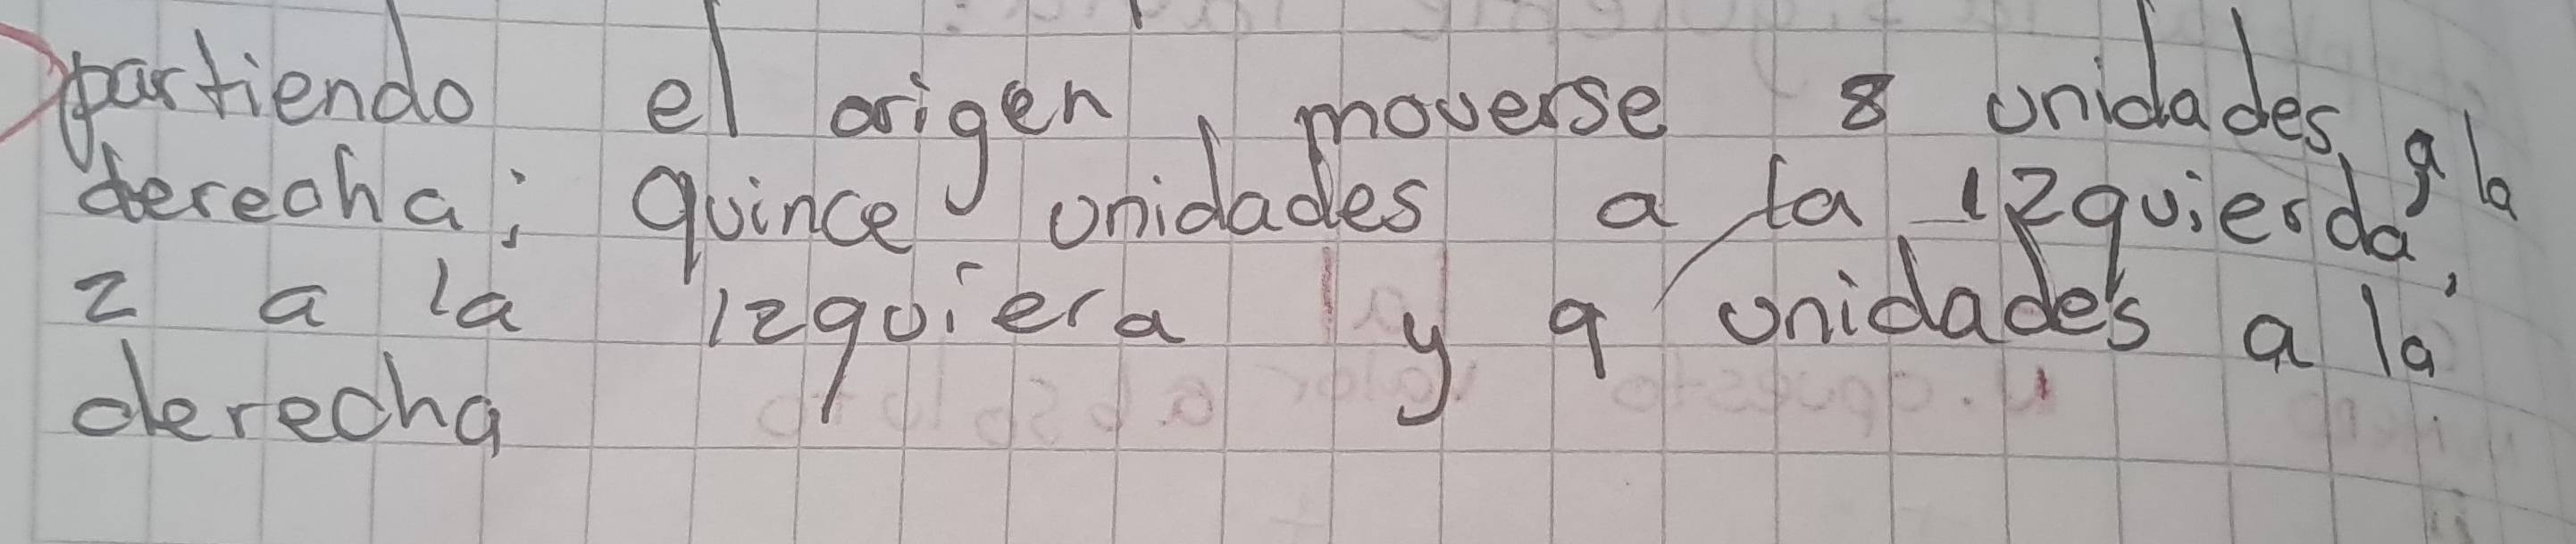 partiendo el origen, moverse 8 unidades, a la
derecha; quince unidades a la izquierda,
2 a la izquiera y 9 unidades a la
derecha